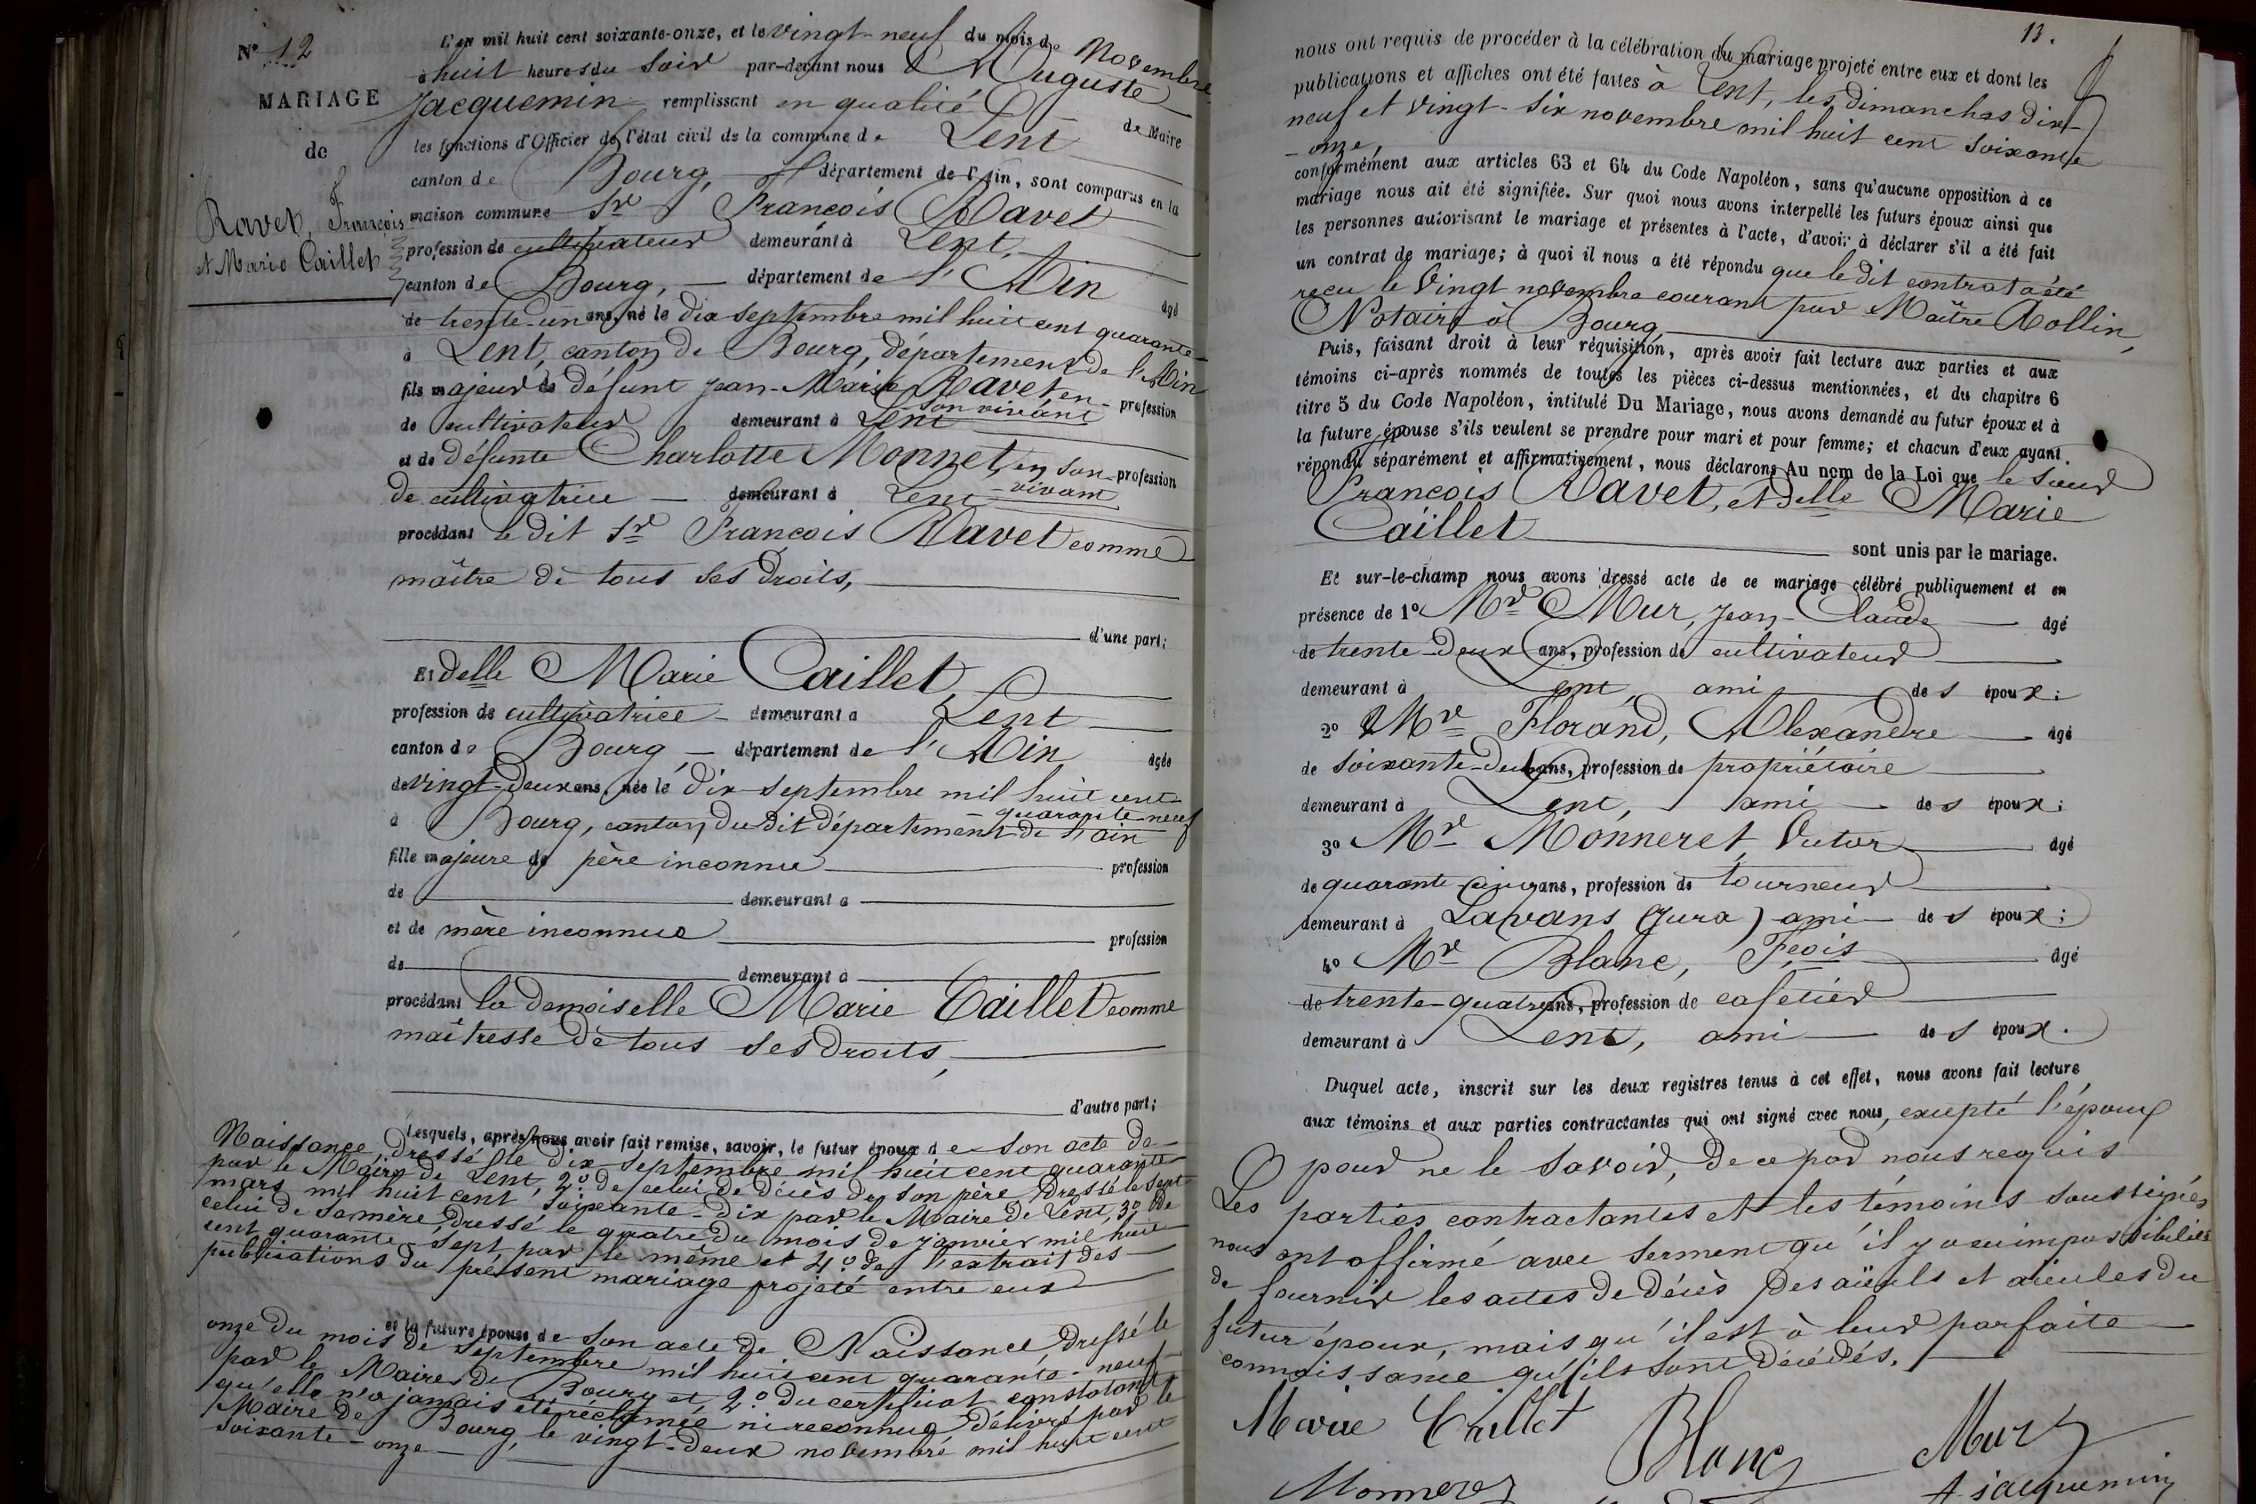 N° 12
MARIAGE
de
Ravet, François
et Marie Caillet
L'an mil huit cent soixante-onze, et le vingt-neuf du mois de Novembre
à huit heures du soir par-devant nous Auguste
Jacquemin remplissant en qualité de Maire
les fonctions d'Officier de l'état civil de la commune de Lent
canton de Bourg, département de l'Ain, sont comparus en la
maison commune Sr François Ravet
profession de cultivateur demeurant à Lent,
canton de Bourg, département de l'Ain âgé
de trente-un ans, né le dix septembre mil huit cent quarante
à Lent, canton de Bourg, département de l'Ain
fils majeur de défunt Jean-Marie Ravet en son vivant profession
de cultivateur demeurant à Lent
et de défunte Charlotte Monnet, en son vivant profession
de cultivatrice demeurant à Lent
procédant le dit Sr François Ravet comme
maître de tous ses droits,
d'une part;
Et delle Marie Caillet
profession de cultivatrice demeurant à Lent
canton de Bourg département de l'Ain âgée
de vingt-deux ans, née le dix septembre mil huit cent quarante-neuf
à Bourg, canton du dit département de l'ain
fille majeure de père inconnu profession
de demeurant à
et de mère inconnue profession
de demeurant à
procédant la demoiselle Marie Caillet comme
maîtresse de tous ses droits,
d'autre part;
Lesquels, après nous avoir fait remise, savoir, le futur époux de son acte de
Naissance dressé le dix septembre mil huit cent quarante
par le Maire de Lent, 2° de celui de décès de son père dressé le sept
mars mil huit cent soixante-dix par le Maire de Lent, 3° de
celui de sa mère, dressé le quatre du mois de janvier mil huit
cent quarante-sept par le même et 4° de l'extrait des
publications du présent mariage projeté entre eux
et la future épouse de son acte de Naissance dressé le
onze du mois de septembre mil huit cent quarante-neuf
par le Maire de Bourg et 2° du certificat constatant
qu'elle n'a jamais été réclamée ni reconnue délivré par le
Maire de Bourg, le vingt-deux novembre mil huit cent
soixante-onze
13.
nous ont requis de procéder à la célébration du mariage projeté entre eux et dont les
publications et affiches ont été faites à Lent, les dimanches dix-
neuf et vingt-six novembre mil huit cent soixante
-onze,
conformément aux articles 63 et 64 du Code Napoléon, sans qu'aucune opposition à ce
mariage nous ait été signifiée. Sur quoi nous avons interpellé les futurs époux ainsi que
les personnes autorisant le mariage et présentes à l'acte, d'avoir à déclarer s'il a été fait
un contrat de mariage; à quoi il nous a été répondu que le dit contrat a été
reçu le vingt novembre courant par Maître Rollin,
Notaire à Bourg
Puis, faisant droit à leur réquisition, après avoir fait lecture aux parties et aux
témoins ci-après nommés de toutes les pièces ci-dessus mentionnées, et du chapitre 6
titre 5 du Code Napoléon, intitulé Du Mariage, nous avons demandé au futur époux et à
la future épouse s'ils veulent se prendre pour mari et pour femme; et chacun d'eux ayant
répondu séparément et affirmativement, nous déclarons Au nom de la Loi que le sieur
François Ravet, et delle Marie
Caillet
sont unis par le mariage.
Et sur-le-champ nous avons dressé acte de ce mariage célébré publiquement et en
présence de 1° Mr Mur, Jean-Claude âgé
de trente-deux ans, profession de cultivateur
demeurant à Lent, ami des époux;
2° Mr Florand, Alexandre âgé
de soixante-deux ans, profession de propriétaire
demeurant à Lent, ami des époux;
3° Mr Monneret, Victor âgé
de quarante-cinq ans, profession de tourneur
demeurant à Lavans (Jura) ami des époux;
4° Mr Blanc, Fçois âgé
de trente-quatre ans, profession de cafetier
demeurant à Lent, ami des époux.
Duquel acte, inscrit sur les deux registres tenus à cet effet, nous avons fait lecture
aux témoins et aux parties contractantes qui ont signé avec nous, excepté l'époux
pour ne le savoir, de ce par nous requis
Les parties contractantes et les témoins soussignés
nous ont affirmé avec serment qu'il y a eu impossibilité
de fournir les actes de décès des aïeuls et aïeules du
futur époux, mais qu'il est à leur parfaite
connaissance qu'ils sont décédés.
Marie Caillet Blanc Mur
Monneret A Jacquemin